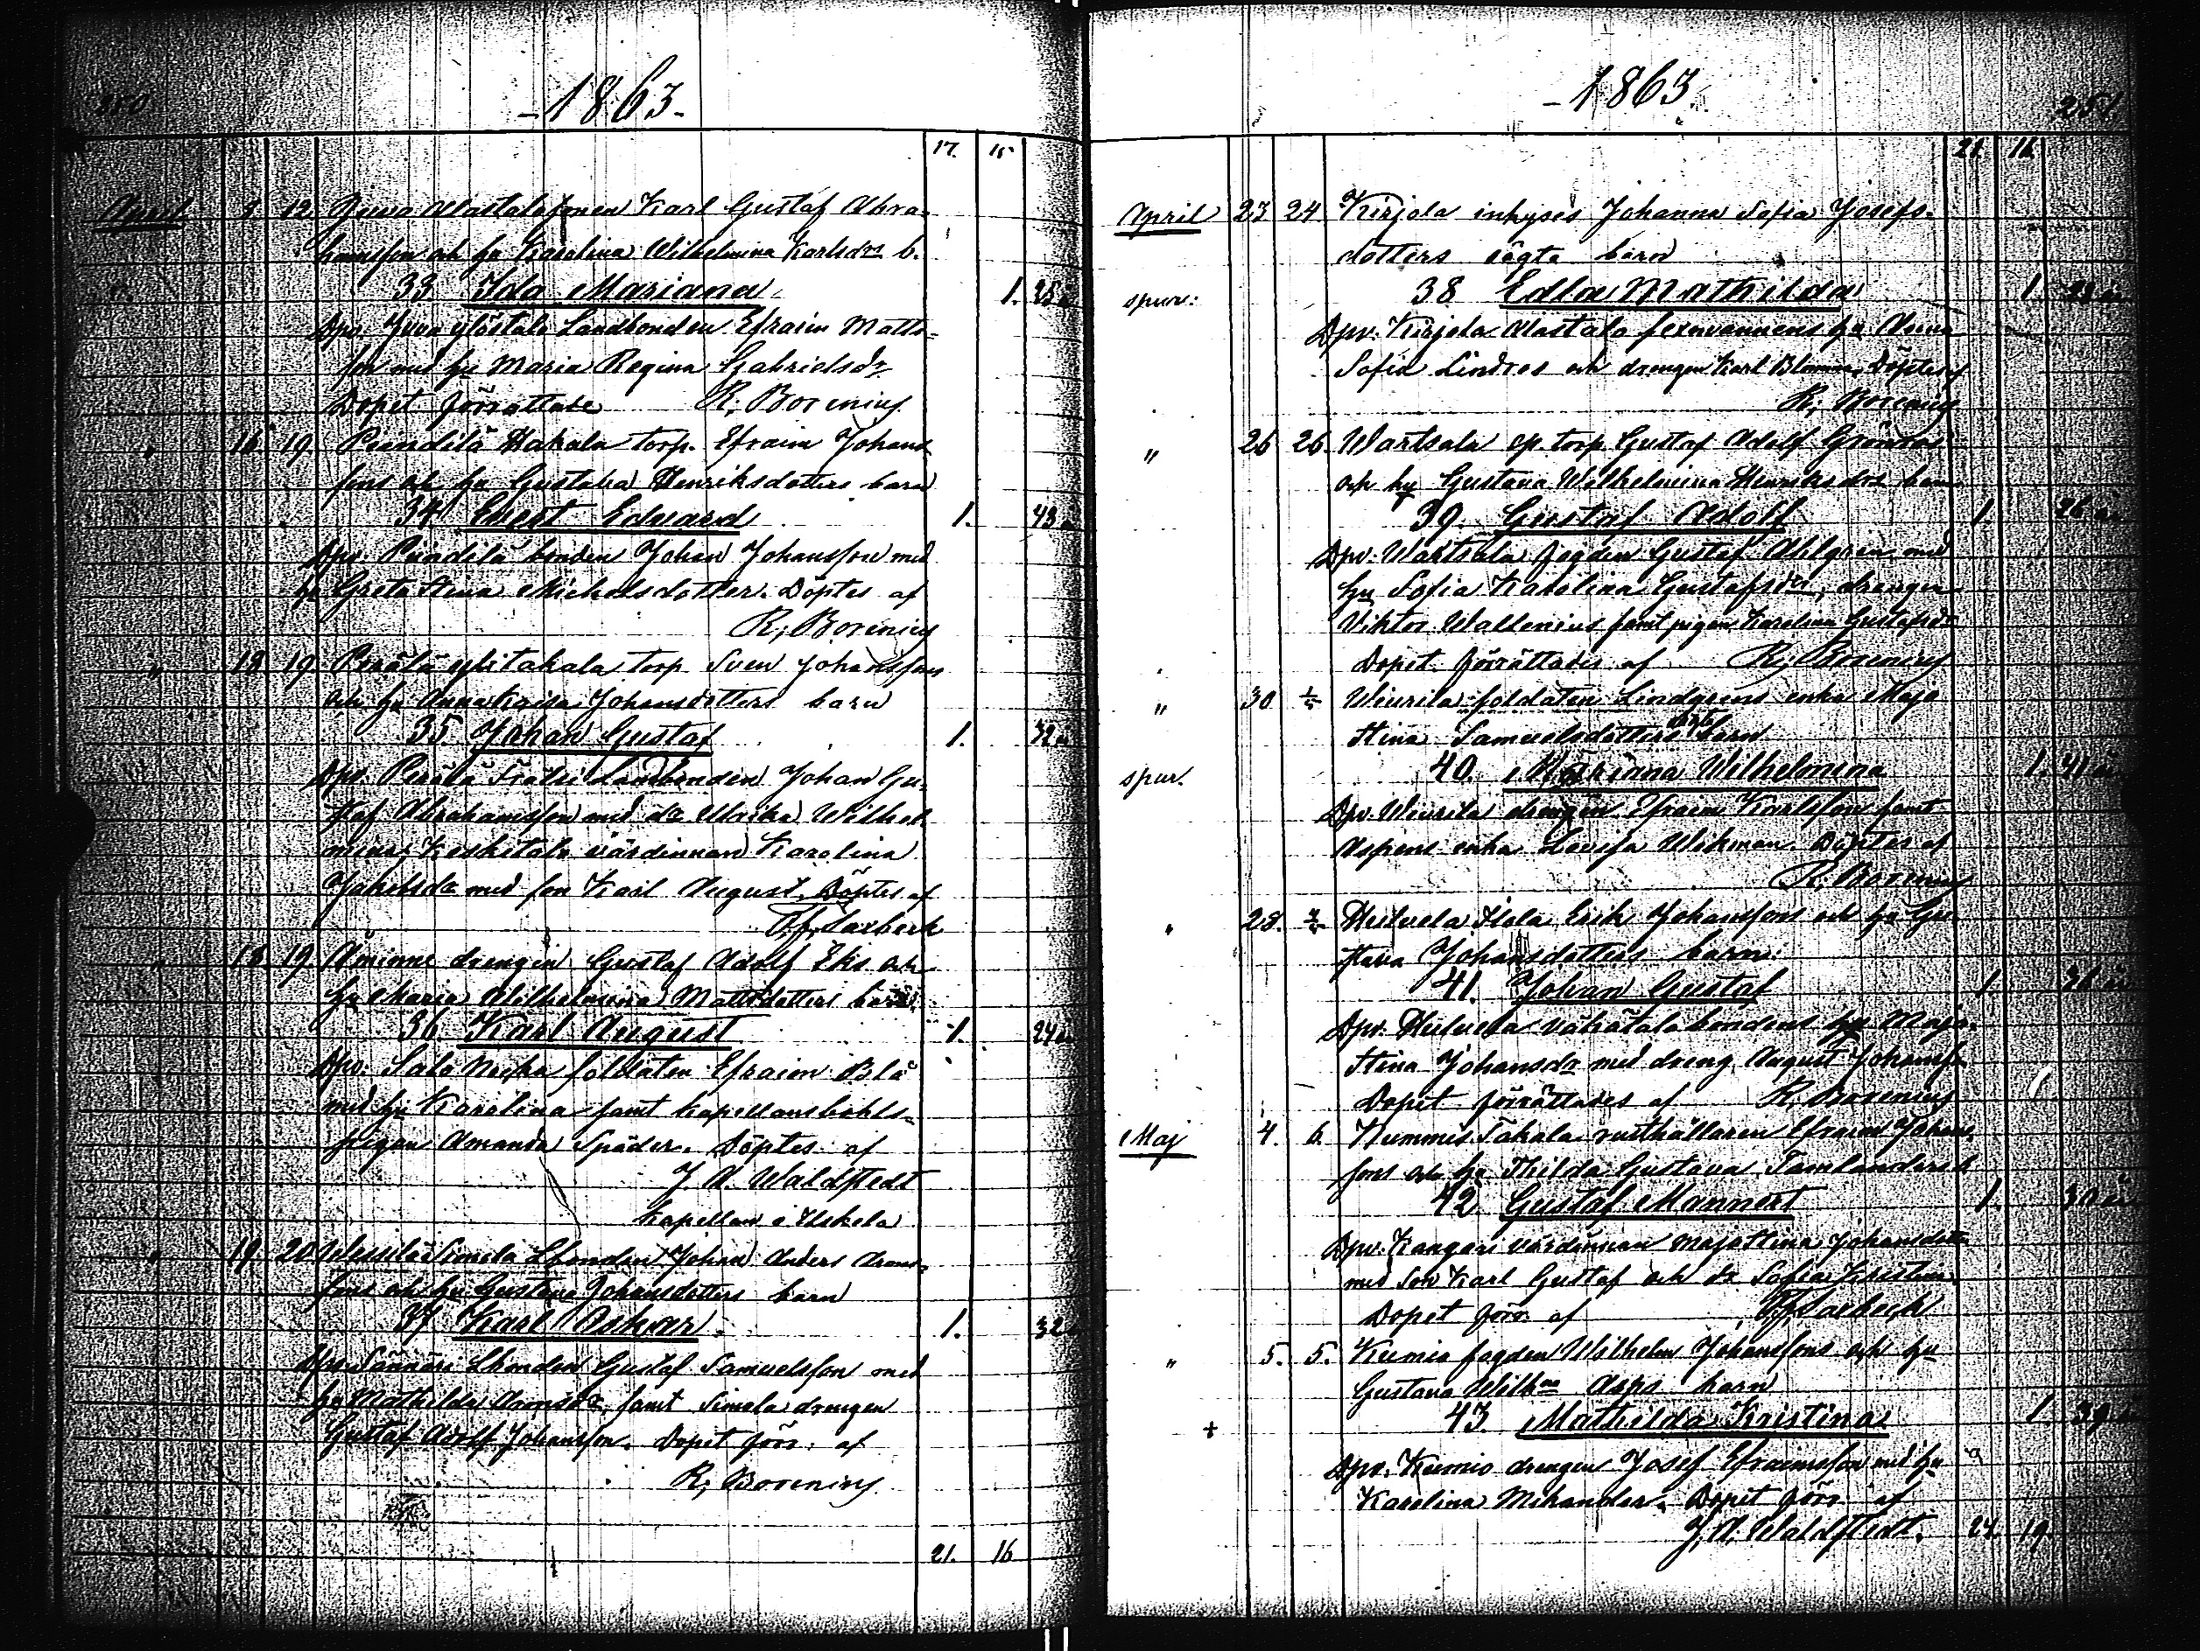 250
-1863-
17. 15
April 9 12. Juva Alastalo sonen Karl Gustaf Abra-
hamsson och hu Karolina Wilhelmina Karlsdrs b.
33 Ida Mariana 1. 25 år
Dpv. Juva ylöstalo Landbonden Efraim Matts-
son med hu Maria Regina Gabrielsdr
Dopet förrättade R; Borenius
" 16 19 Hakala torp. Efraim Johans-
sons och hu Gustava Henriksdotters barn
34 Ernst Edvard 1. 43
Dpv. bonden Johan Johansson med
hu Greta Stina Michelsdotter. Döptes af
R; Borenius
" 18 19 Perälä ylitakala torp Sven Johanssons
och hu Anna Kaisa Johansdotters barn
35. Johan Gustaf 1. 32 år
Dpv. Perälä Landbonden Johan Gu-
staf Abrahamsson med dr Ulrika Wilhel-
mina, Keskitalo värdinnan Karolina
Jakobsdr med son Karl August. Döptes af
Saxbeck
" 18 19 Åminne drengen Gustaf Adolf Eks och
hu Maria Wilhelmina Mattsdotters barn
36 Karl August 1. 24 år
Dpv. Salo soldaten Efraim Blå
med hu Karolina samt kapellansbohls-
pigan Amanda Späder. Döptes af
J. A. Waldstedt
kapellan i Uskela
" 19 20 Simola Lbonden Johan Anders Arons-
sons och hu Gustava Johansdotters barn
37 Karl Oskar 1. 32
Dpv. Lbonden Gustaf Samuelsson med
hu Mathilda Aronsdr, samt Simola drengen
Gustaf Adolf Johansson. Dopet förr: af
R; Borenius
21. 16
-1863.
251.
21. 16
April 23 24 Kirjola inhyses Johanna Sofia Josefs-
dotters oägta barn
spur: 38 Edla Mathilda 1. 23 år
Dpv. Kirjola Alastalo hu Anna
Sofia Lindros och drengen Karl Blomma. Döptes af
R; Borenius
" 26 26. Wartsala torp. Gustaf Adolf Gröndas
och hu Gustava Wilhelmina Henriksdrs barn
39. Gustaf Adolf 1 26 år
Dpv. Wartsala fogden Gustaf Ahlgren med
hu Sofia Karolina Gustafsdr, drengen
Viktor Wallenius samt pigan Karolina Gustafsdr
Dopet förrättades af R; Borenius
" 30 1/5 soldaten Lindgrens enka Maja
Stina Samuelsdotters oägta barn
spur. 40. Marianna Wilhelmina 1. 41 år
Dpv. drengen Efraim Karlsson samt
Aspens enka Lovisa Wikman. Döptes af
R. Borenius
" 28. Erik Johanssons och hu Gu-
stava Johansdotters barn:
41. Johan Gustaf 1.
Dpv. bondens hu Maja
Stina Johansdr med dreng August Johansson
Dopet förrättades af R. Borenius
Maj 4. 6. rusthållaren Efraim Johans-
sons och hu Thilda Gustava Tamlanders b
42 Gustaf Mannert 1. 30 år
Dpv. Kangari värdinnan Maja Stina Johansdotter
med son Karl Gustaf och dr Sofia Kristina
Dopet förr: af Saxbeck
" 5. 5. Kumio fogden Wilhelm Johanssons och hu
Gustava Wilhna Asps barn
+ 43. Mathilda Kristina 1. 39
Dpv. Kumio drengen Josef Efraimsson med hu
Karolina Mikander. Dopet förr: af
J. A. Waldstedt. 24 19